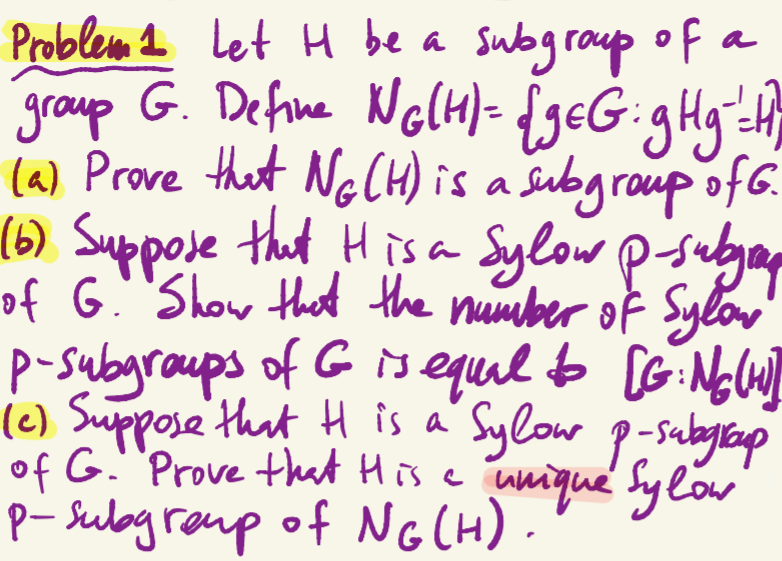 Problem 1 Let H be a subgroup of a
group G. Define N_G(H)= {g∈G: gHg⁻¹=H}
(a) Prove that N_G(H) is a subgroup of G.
(b) Suppose that H is a Sylow p-subgroup
of G. Show that the number of Sylow
p-subgroups of G is equal to [G:N_G(H)]
(c) Suppose that H is a Sylow p-subgroup
of G. Prove that H is a unique Sylow
p-subgroup of N_G(H).